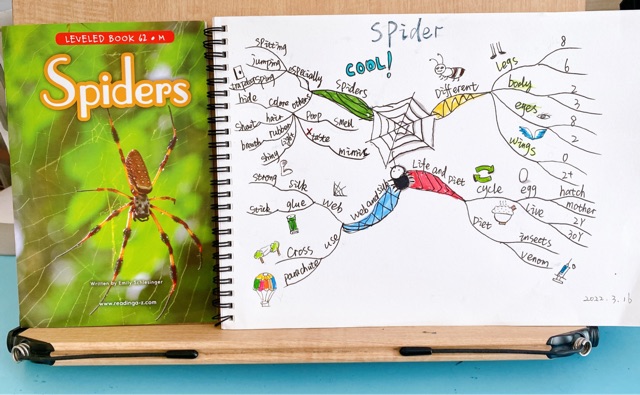 LEVELED BOOK 62 • M
Spiders
Written by Emily Schlesinger
www.readinga-z.com
Spider
COOL!
Spiders
especially
spitting
jumping
others
hide
Shoot
hair
breath
rubber
shiny
light
Poop
smell
taste
mimic
Different
Legs
8
6
body
2
3
eyes
8
2
wings
0
2+
Web and silk
web
silk
strong
glue
stick
use
Cross
parachute
Life and Diet
cycle
egg
hatch
Live
mother
2Y
30Y
Diet
insects
venom
2022.3.16